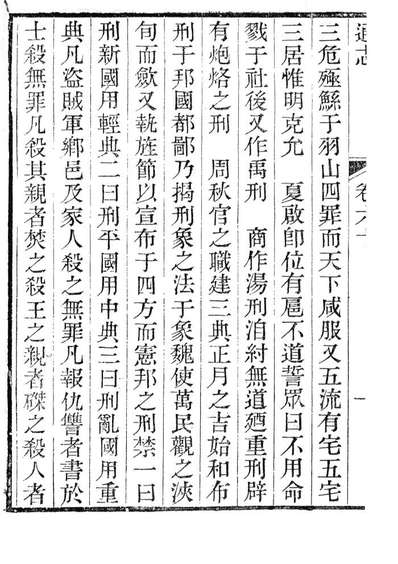 通志
卷六十
一
三危殛鯀于羽山四罪而天下咸服又五流有宅五宅
三居惟明克允　夏啟卽位有扈不道誓眾曰不用命
戮于社後又作禹刑　商作湯刑洎紂無道廼重刑辟
有炮烙之刑　周秋官之職建三典正月之吉始和布
刑于邦國都鄙乃揭刑象之法于象魏使萬民觀之浹
旬而斂又執旌節以宣布于四方而憲邦之刑禁一曰
刑新國用輕典二曰刑平國用中典三曰刑亂國用重
典凡盜賊軍鄉邑及家人殺之無罪凡報仇讐者書於
士殺無罪凡殺其親者焚之殺王之親者磔之殺人者